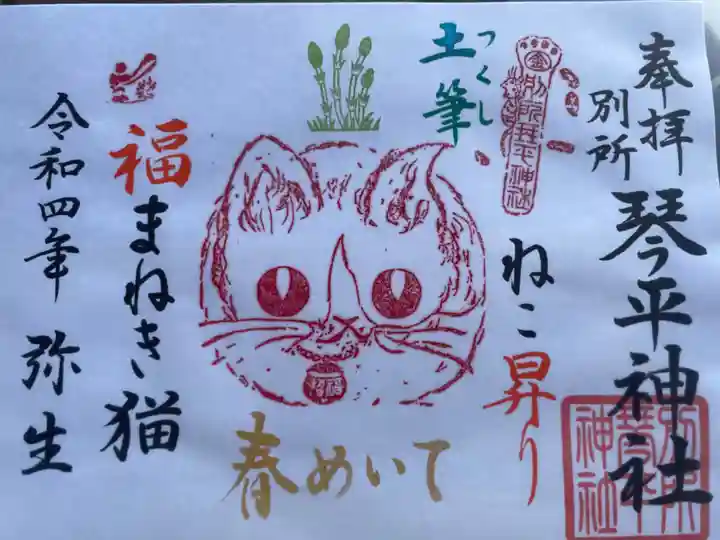 奉拝
別所
琴平神社
別所琴平神社
ねこ昇り
つくし
土筆
春めいて
福まねき猫
令和四年 弥生